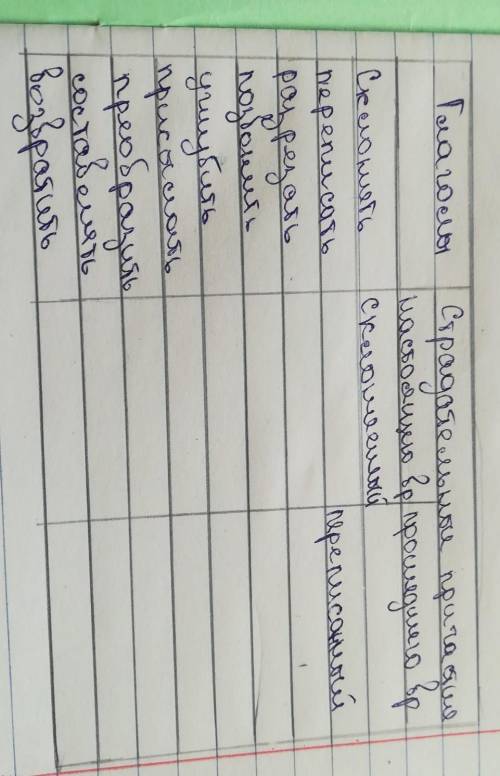 Глаголы Страдательные причастие
настоящего вр прошедшего вр
Склонять склоняемый
переписать переписанный
разрезать
позвонить
углубить
присылать
преобразить
составлять
возвратить